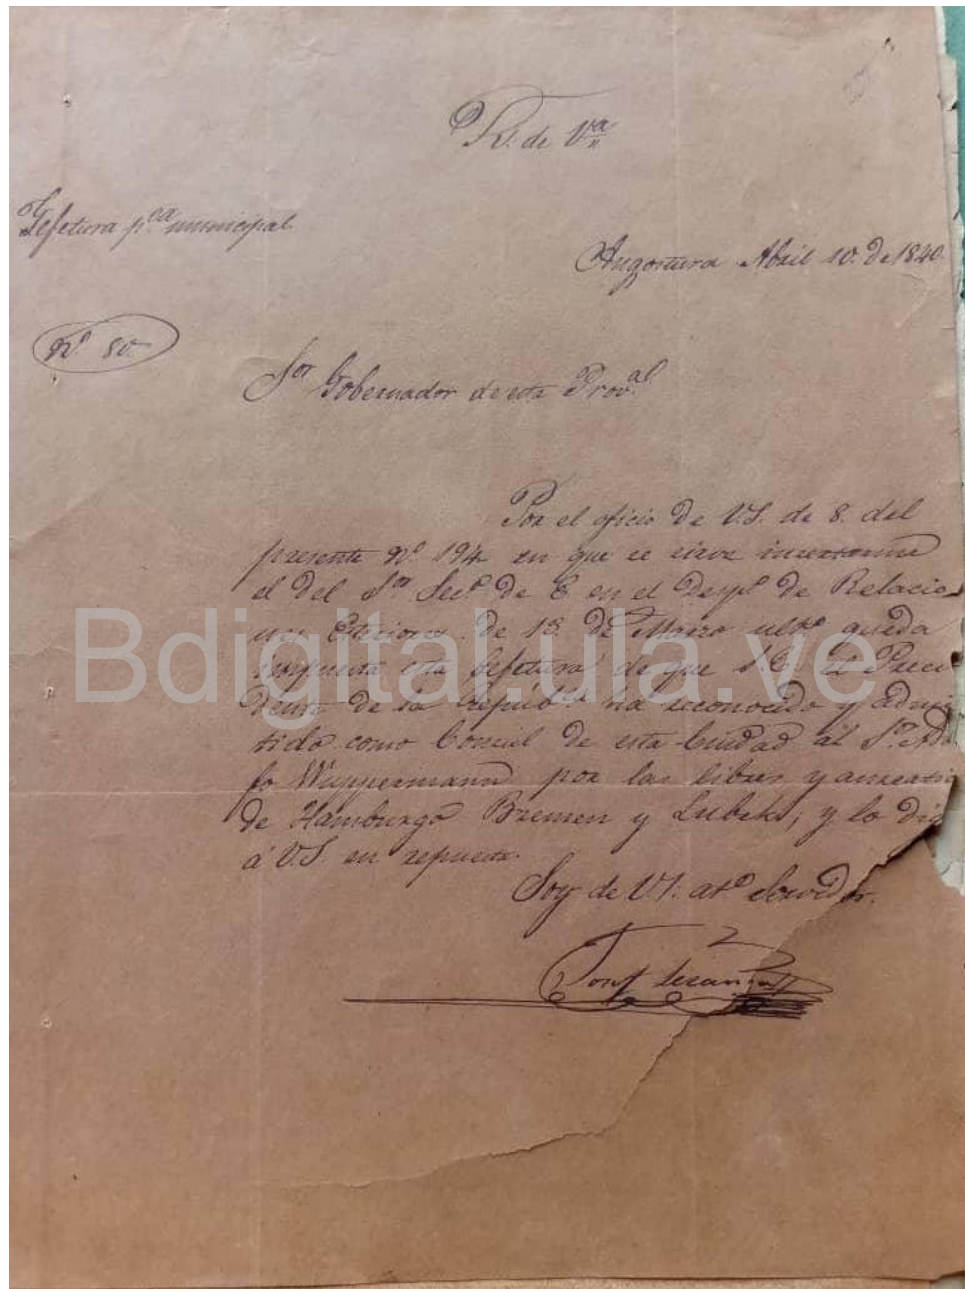 R. de V.a
Gefetura p.ca municipal
Angostura Abril 10. de 1840.
N.o 80.
S.or Gobernador de esta Prov.al
Por el oficio de V.S. de 8. del
presente N.o 194 en que se sirve incertarme
el del S.or Sec.o de E en el Desp.o de Relacio
nes Esteriores de 13 de Marzo ult.o queda
impuesta esta Gefetura de que S.E. el Preci
dente de la Repúb.ca ha reconocido y admi
tido como Consul de esta Ciudad al S.r Adol
fo Wuppermann por las libres y anseatica
de Hamburgo Bremen y Lubek; y lo digo
á V.S. en repuesta.
Soy de VS. at.o Servidor.
Bdigital.ula.ve